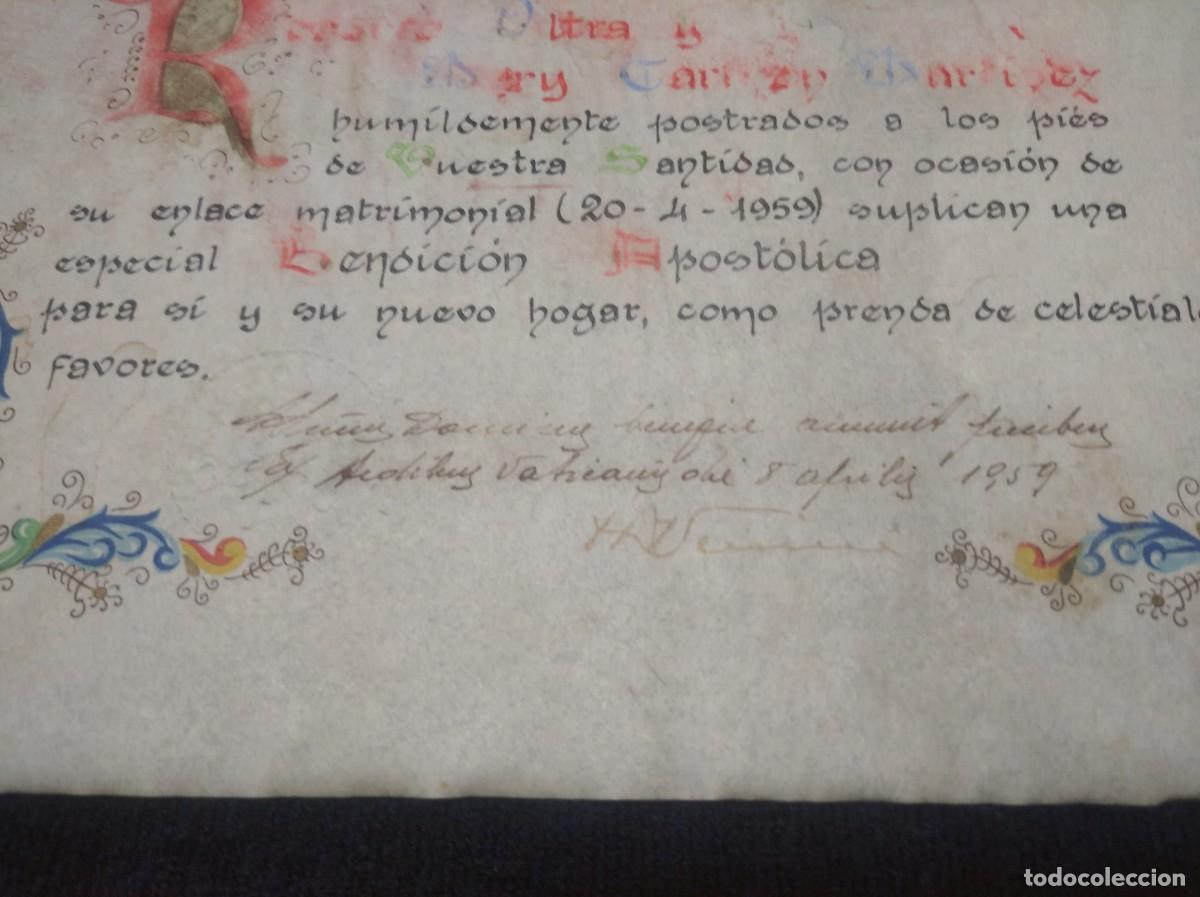 Oltra y
Mary Carmen Martínez
humildemente postrados a los piés
de Vuestra Santidad, con ocasión de
su enlace matrimonial (20-4-1959) suplican una
especial Bendición Apostólica
para sí y su nuevo hogar, como prenda de celestiale
favores.
benigne annuit precibus
Ex Aedibus Vaticanis die 8 aprilis 1959
todocoleccion